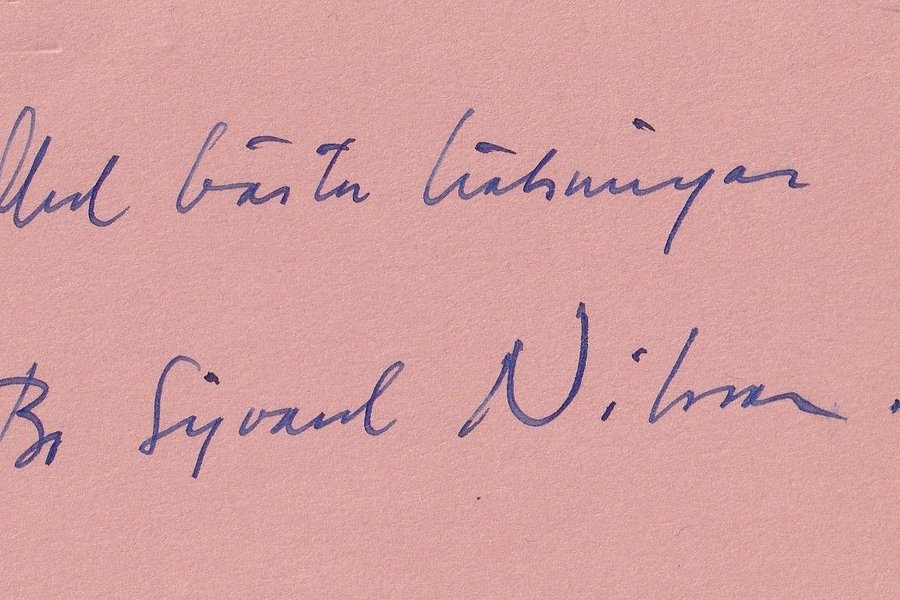 Med bästa hälsningar
Bo Sigvard Nilsson.